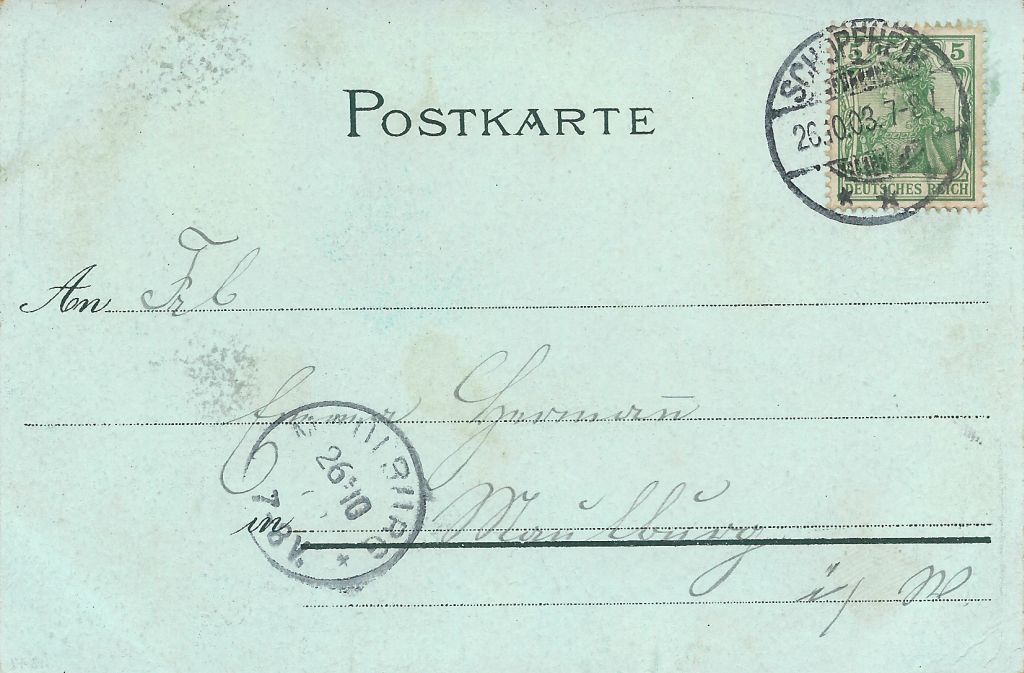 POSTKARTE
5 5
DEUTSCHES REICH
SCHOPFHEIM
26.10.03. 7-8 V.
An Frl
Emma Herman̄
MAULBURG
26.10
7-8 V.
in Maulburg
i/ W